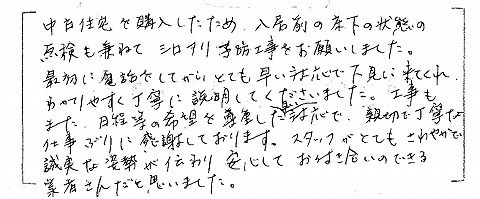 中古住宅を購入したため、入居前の床下の状態の
点検も兼ねてシロアリ予防工事をお願いしました。
最初に電話をしてからとても早い対応で下見に来てくれ、
わかりやすく丁寧に説明してくださいました。工事も
また、日程等の希望を尊重した対応で、親切で丁寧な
仕事ぶりに感謝しております。スタッフがとてもさわやかで
誠実な姿勢が伝わり安心してお付き合いのできる
業者さんだと思いました。